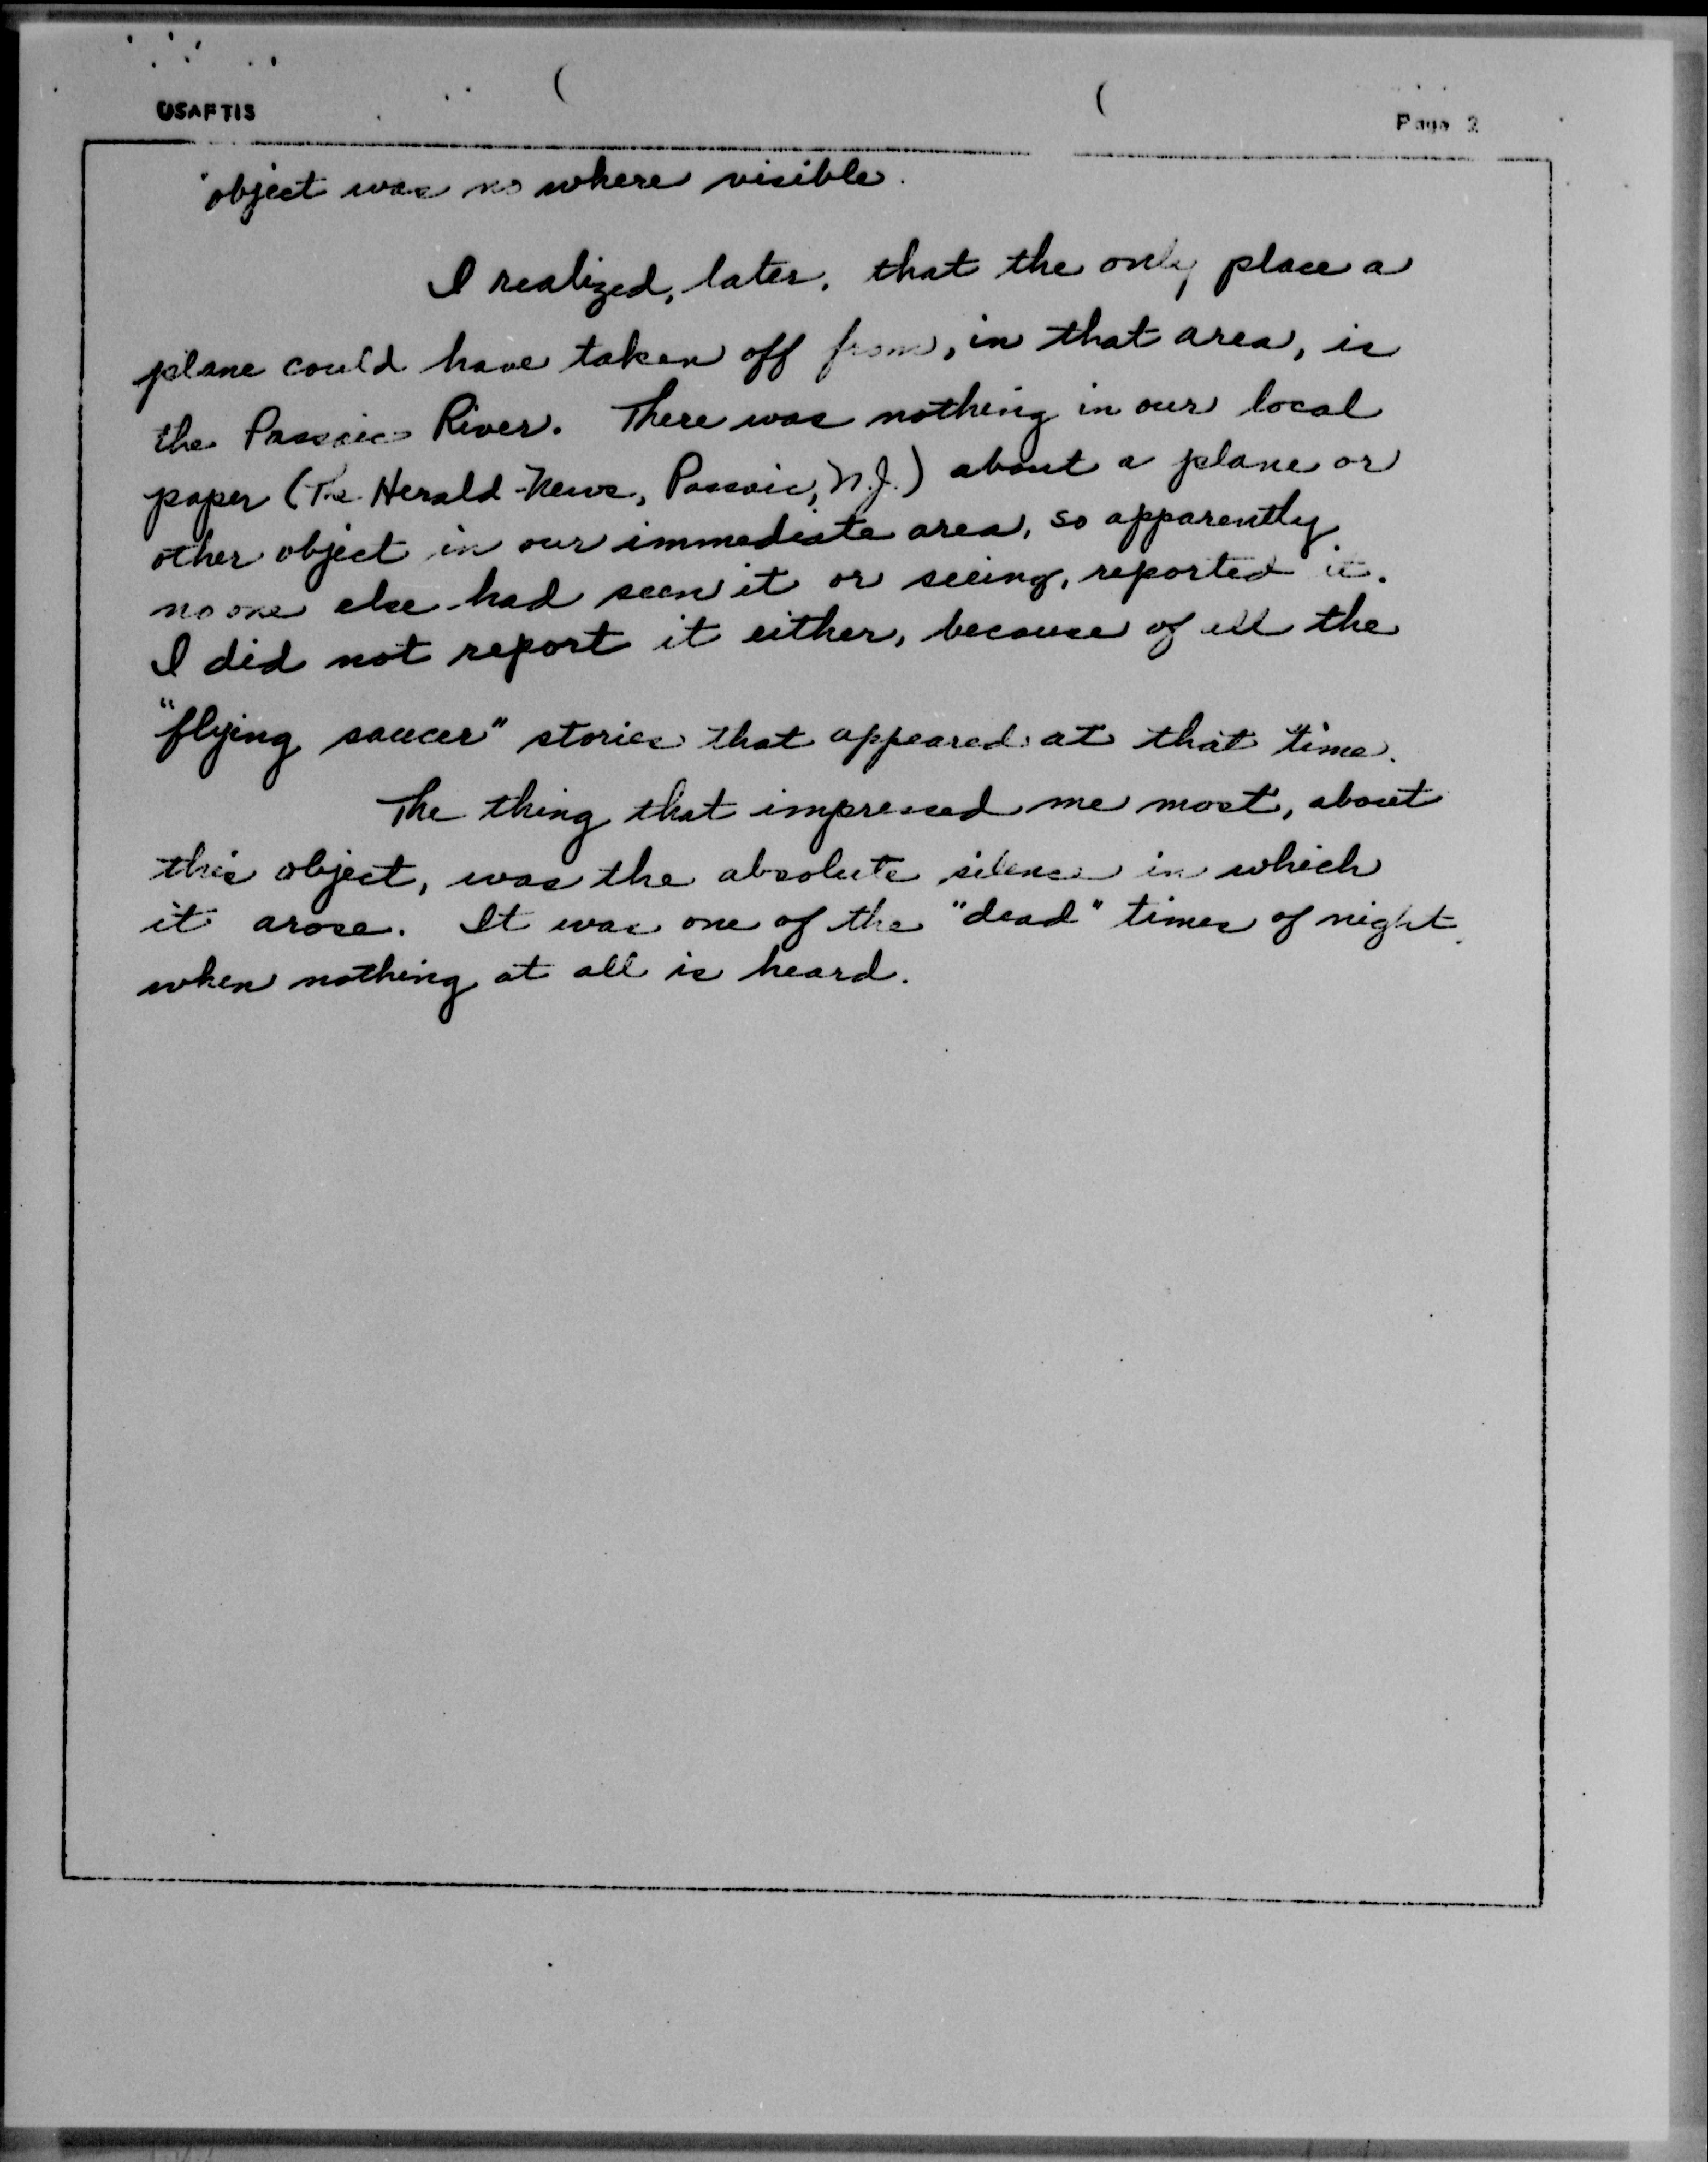 USAFTIS
Page 2
object was no where visible.
I realized, later, that the only place a
plane could have taken off from, in that area, is
the Passaic River. There was nothing in our local
paper (The Herald-News, Passaic, N.J.) about a plane or
other object in our immediate area, so apparently
no one else had seen it or seeing, reported it.
I did not report it either, because of all the
"flying saucer" stories that appeared at that time.
The thing that impressed me most, about
this object, was the absolute silence in which
it arose. It was one of the "dead" times of night
when nothing at all is heard.